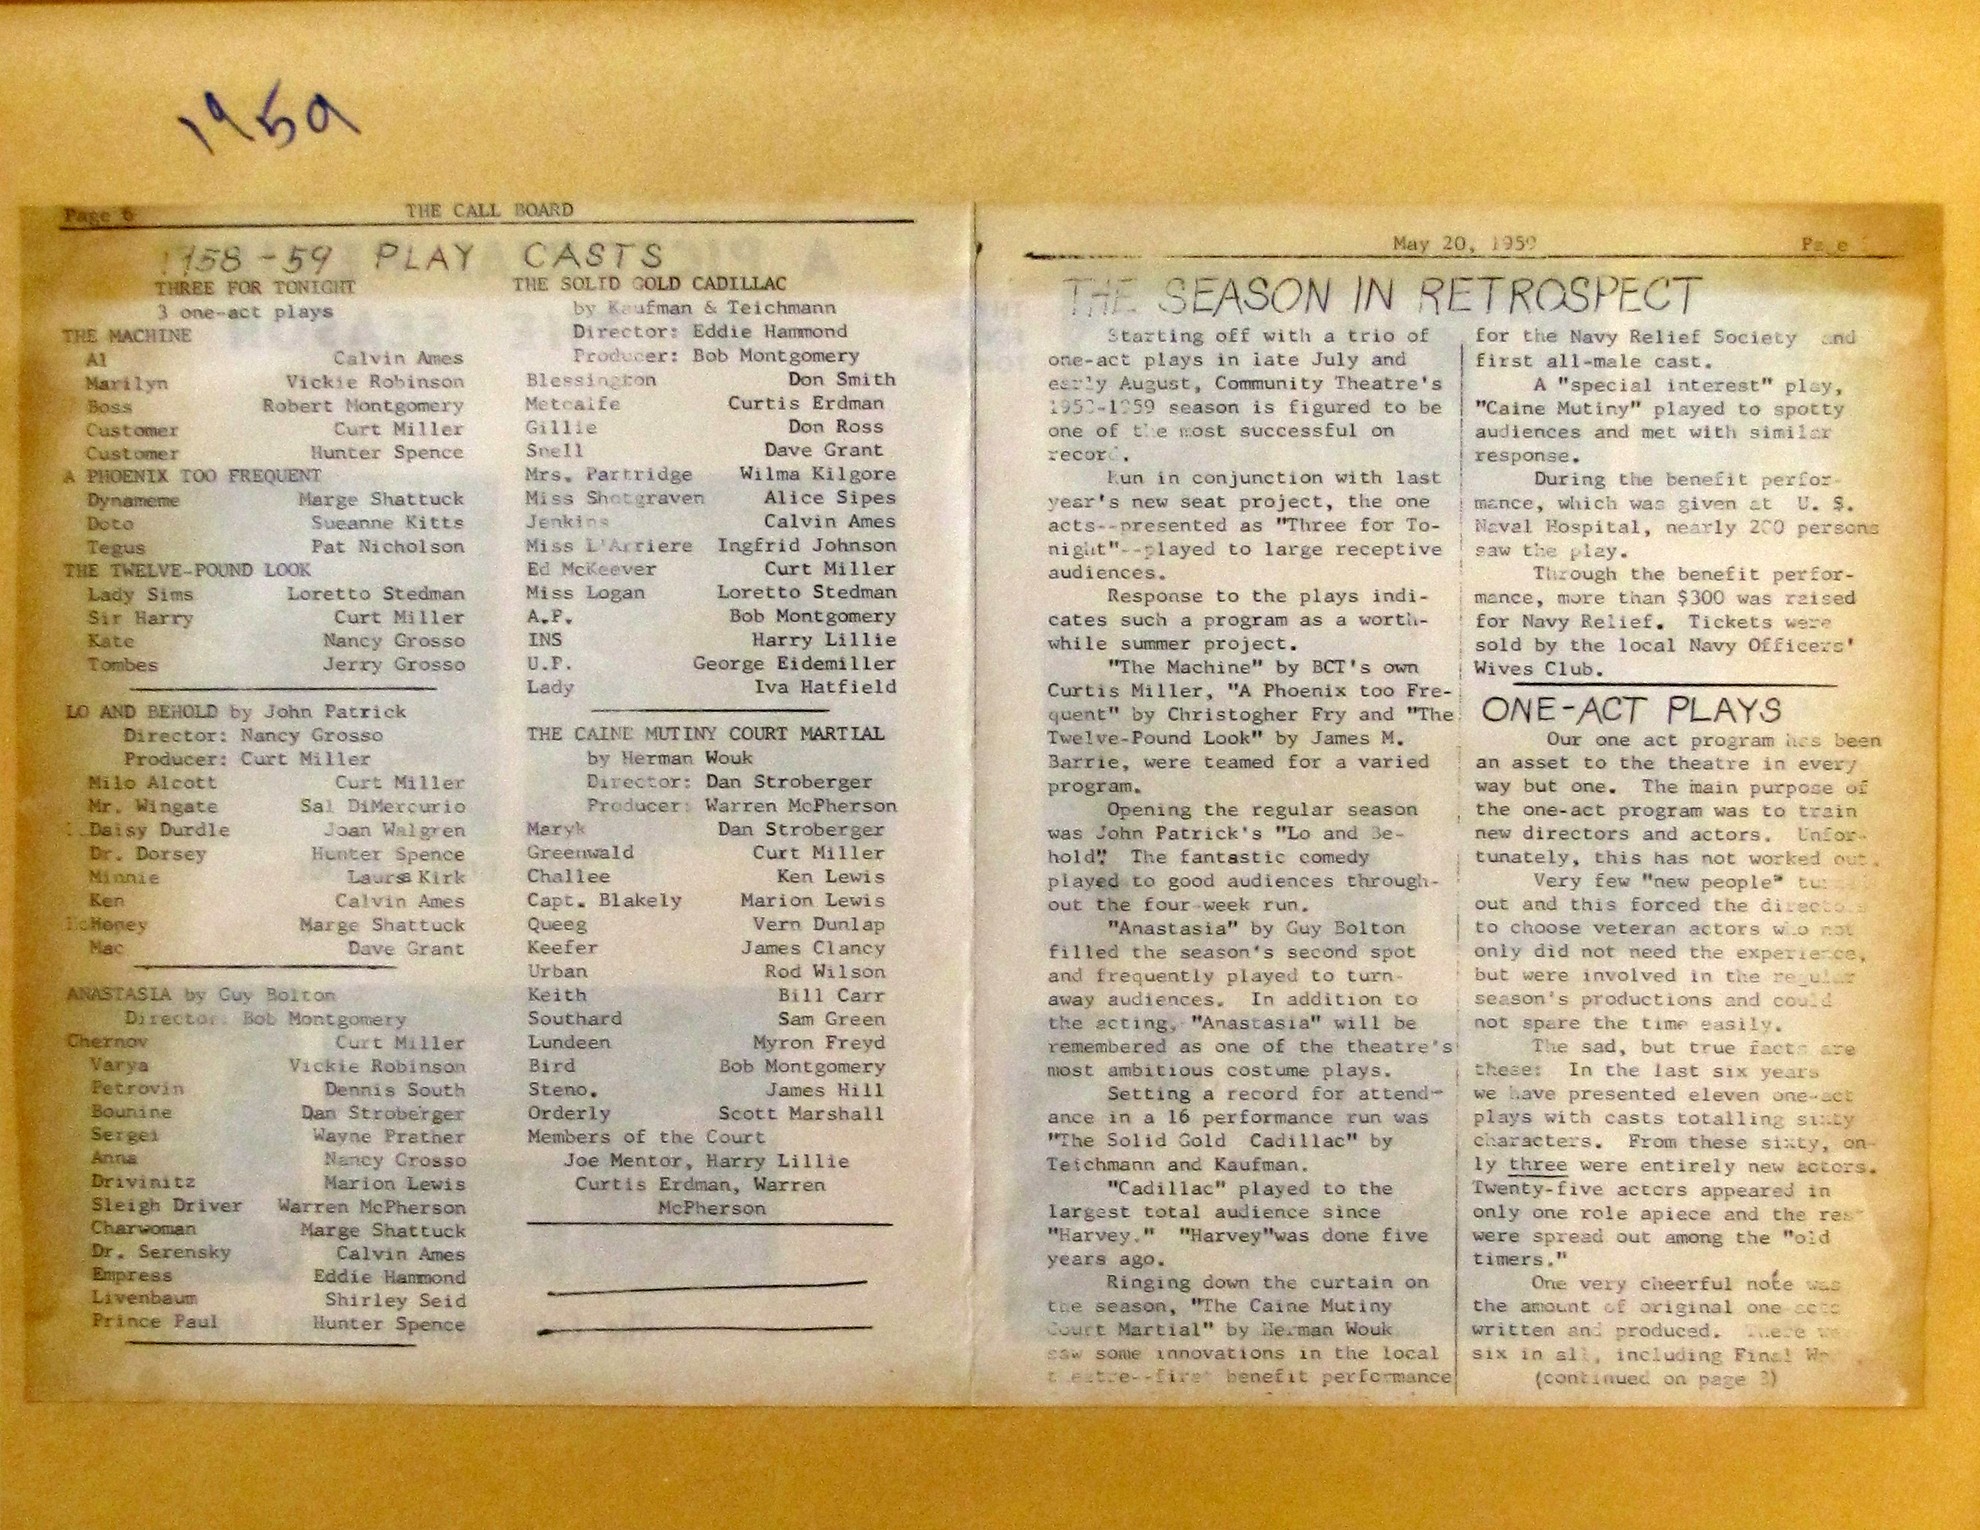 1959
Page 6 THE CALL BOARD
1958-59 PLAY CASTS
THREE FOR TONIGHT
3 one-act plays
THE MACHINE
Al Calvin Ames
Marilyn Vickie Robinson
Boss Robert Montgomery
Customer Curt Miller
Customer Hunter Spence
A PHOENIX TOO FREQUENT
Dynameme Marge Shattuck
Doto Sueanne Kitts
Tegus Pat Nicholson
THE TWELVE-POUND LOOK
Lady Sims Loretto Stedman
Sir Harry Curt Miller
Kate Nancy Grosso
Tombes Jerry Grosso
LO AND BEHOLD by John Patrick
Director: Nancy Grosso
Producer: Curt Miller
Milo Alcott Curt Miller
Mr. Wingate Sal DiMercurio
Daisy Durdle Joan Walgren
Dr. Dorsey Hunter Spence
Minnie Laura Kirk
Ken Calvin Ames
Honey Marge Shattuck
Mac Dave Grant
ANASTASIA by Guy Bolton
Director: Bob Montgomery
Chernov Curt Miller
Varya Vickie Robinson
Petrovin Dennis South
Bounine Dan Stroberger
Sergei Wayne Prather
Anna Nancy Grosso
Drivinitz Marion Lewis
Sleigh Driver Warren McPherson
Charwoman Marge Shattuck
Dr. Serensky Calvin Ames
Empress Eddie Hammond
Livenbaum Shirley Seid
Prince Paul Hunter Spence
THE SOLID GOLD CADILLAC
by Kaufman & Teichmann
Director: Eddie Hammond
Producer: Bob Montgomery
Blessington Don Smith
Metcalfe Curtis Erdman
Gillie Don Ross
Snell Dave Grant
Mrs. Partridge Wilma Kilgore
Miss Shotgraven Alice Sipes
Jenkins Calvin Ames
Miss L'Arriere Ingfrid Johnson
Ed McKeever Curt Miller
Miss Logan Loretto Stedman
A.P. Bob Montgomery
INS Harry Lillie
U.P. George Eidemiller
Lady Iva Hatfield
THE CAINE MUTINY COURT MARTIAL
by Herman Wouk
Director: Dan Stroberger
Producer: Warren McPherson
Maryk Dan Stroberger
Greenwald Curt Miller
Challee Ken Lewis
Capt. Blakely Marion Lewis
Queeg Vern Dunlap
Keefer James Clancy
Urban Rod Wilson
Keith Bill Carr
Southard Sam Green
Lundeen Myron Freyd
Bird Bob Montgomery
Steno. James Hill
Orderly Scott Marshall
Members of the Court
Joe Mentor, Harry Lillie
Curtis Erdman, Warren
McPherson
May 20, 1959 Page
THE SEASON IN RETROSPECT
Starting off with a trio of
one-act plays in late July and
early August, Community Theatre's
1958-1959 season is figured to be
one of the most successful on
record.
Run in conjunction with last
year's new seat project, the one
acts--presented as "Three for To-
night"--played to large receptive
audiences.
Response to the plays indi-
cates such a program as a worth-
while summer project.
"The Machine" by BCT's own
Curtis Miller, "A Phoenix too Fre-
quent" by Christogher Fry and "The
Twelve-Pound Look" by James M.
Barrie, were teamed for a varied
program.
Opening the regular season
was John Patrick's "Lo and Be-
hold". The fantastic comedy
played to good audiences through-
out the four-week run.
"Anastasia" by Guy Bolton
filled the season's second spot
and frequently played to turn-
away audiences. In addition to
the acting, "Anastasia" will be
remembered as one of the theatre's
most ambitious costume plays.
Setting a record for attend-
ance in a 16 performance run was
"The Solid Gold Cadillac" by
Teichmann and Kaufman.
"Cadillac" played to the
largest total audience since
"Harvey." "Harvey"was done five
years ago.
Ringing down the curtain on
the season, "The Caine Mutiny
Court Martial" by Herman Wouk
saw some innovations in the local
theatre--first benefit performance
for the Navy Relief Society and
first all-male cast.
A "special interest" play,
"Caine Mutiny" played to spotty
audiences and met with similar
response.
During the benefit perfor-
mance, which was given at U. S.
Naval Hospital, nearly 200 persons
saw the play.
Through the benefit perfor-
mance, more than $300 was raised
for Navy Relief. Tickets were
sold by the local Navy Officers'
Wives Club.
ONE-ACT PLAYS
Our one act program has been
an asset to the theatre in every
way but one. The main purpose of
the one-act program was to train
new directors and actors. Unfor-
tunately, this has not worked out.
Very few "new people"
out and this forced the directors
to choose veteran actors who not
only did not need the experience,
but were involved in the regular
season's productions and could
not spare the time easily.
The sad, but true facts are
these: In the last six years
we have presented eleven one-act
plays with casts totalling sixty
characters. From these sixty, on-
ly three were entirely new actors.
Twenty-five actors appeared in
only one role apiece and the rest
were spread out among the "old
timers."
One very cheerful note was
the amount of original one acts
written and produced. There
six in all, including Final
(continued on page 3)